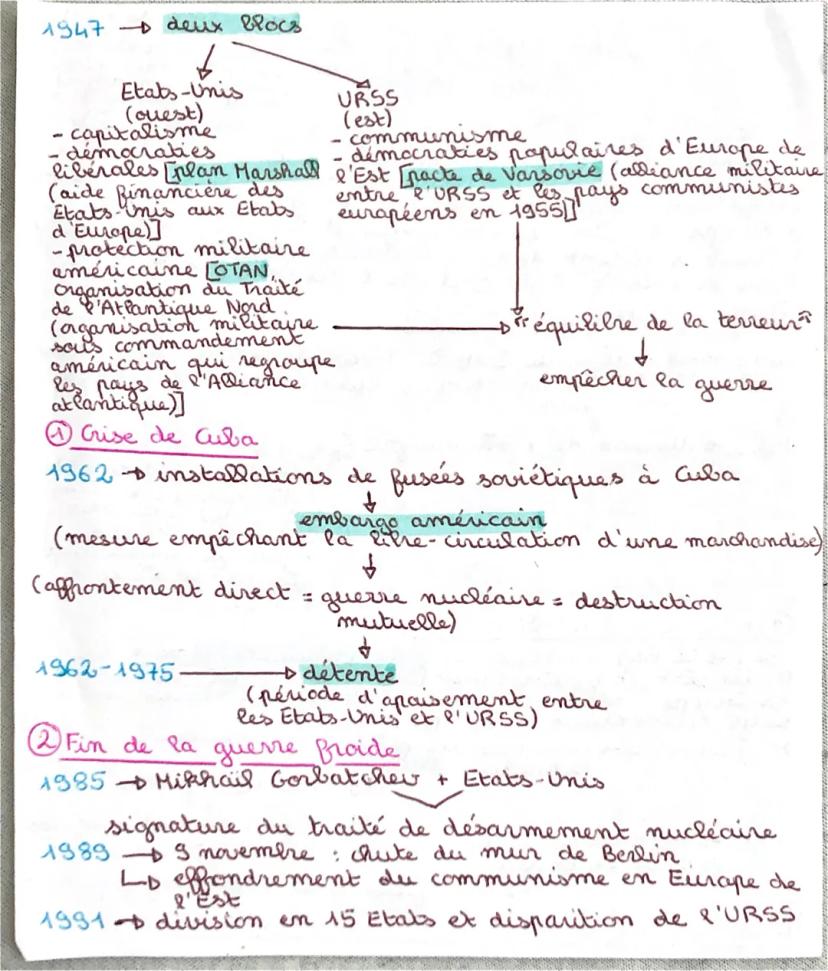 1947 → deux blocs
Etats-Unis
(ouest)
- capitalisme
- démocraties
libérales [plan Marshall
(aide financière des
Etats-Unis aux Etats
d'Europe)]
- protection militaire
américaine [OTAN,
organisation du Traité
de l'Atlantique Nord
(organisation militaire
sous commandement
américain qui regroupe
les pays de l'Alliance
atlantique)]
URSS
(est)
- communisme
- démocraties populaires d'Europe de
l'Est [pacte de Varsovie (alliance militaire
entre l'URSS et les pays communistes
européens en 1955)]
"équilibre de la terreur"
empêcher la guerre
① Crise de Cuba
1962 → installations de fusées soviétiques à Cuba
embargo américain
(mesure empêchant la libre-circulation d'une marchandise)
(affrontement direct = guerre nucléaire = destruction
mutuelle)
1962-1975 → détente
(période d'apaisement entre
les Etats-Unis et l'URSS)
② Fin de la guerre froide
1985 → Mikhaïl Gorbatchev + Etats-Unis
signature du traité de désarmement nucléaire
1989 → 9 novembre : chute du mur de Berlin
↳ effondrement du communisme en Europe de
l'Est
1991 → division en 15 Etats et disparition de l'URSS